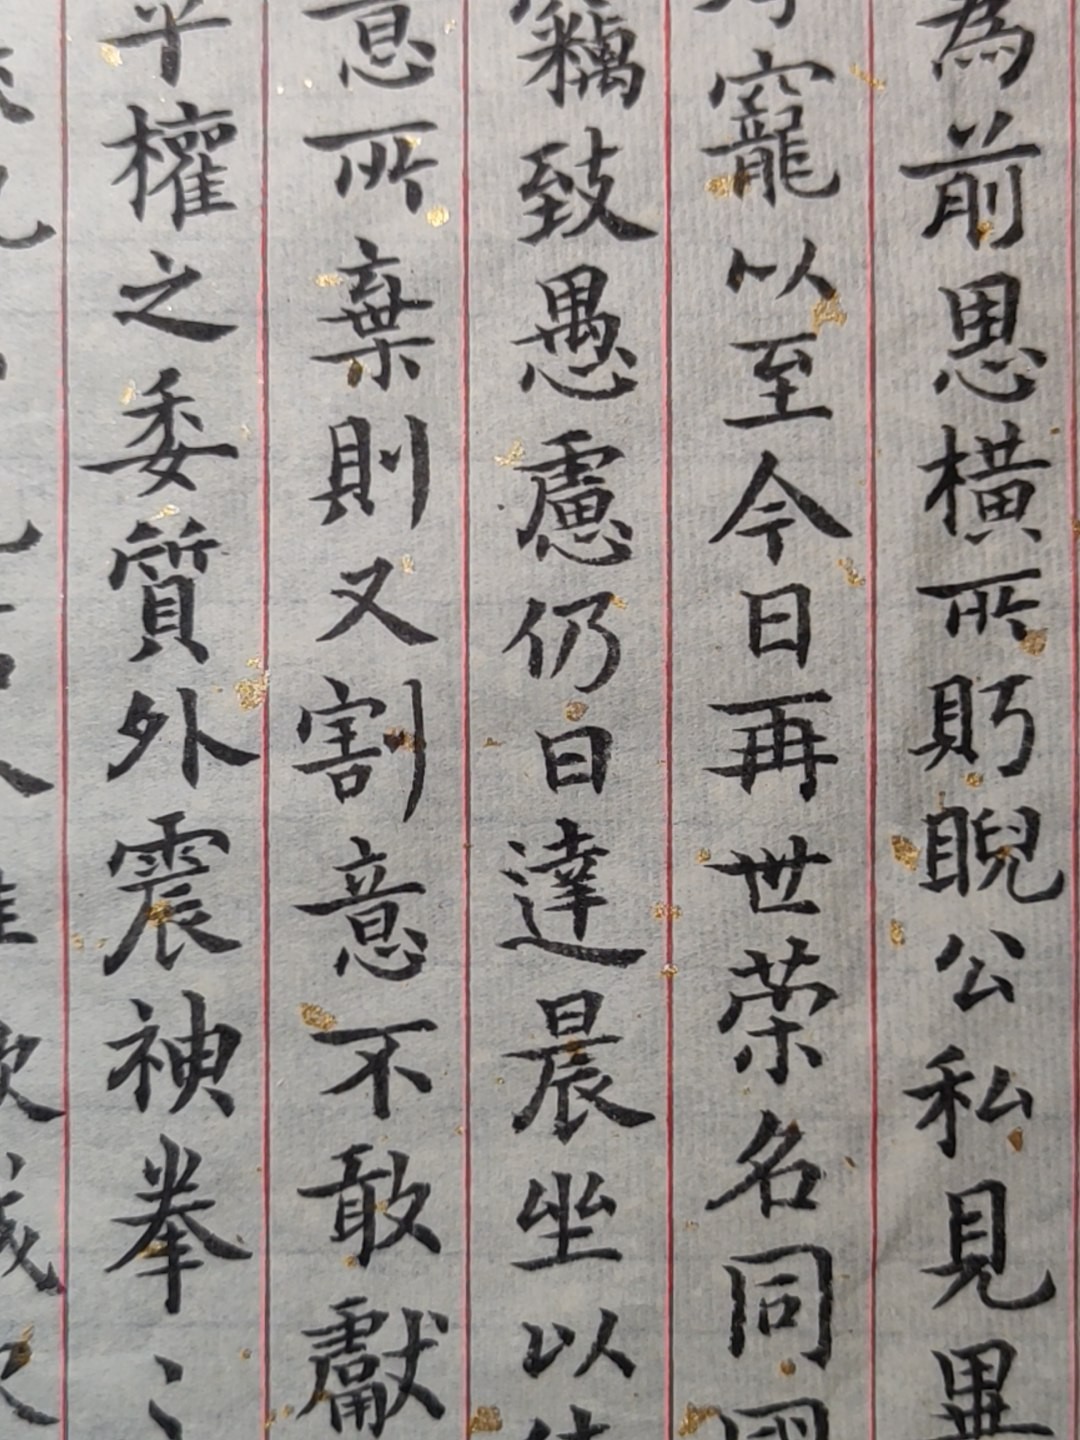 為前恩橫所眄睨公私見異
寵以至今日再世荣名同國
竊致愚慮仍日達晨坐以待
意所棄則又割意不敢獻
平權之委質外震神拳〻